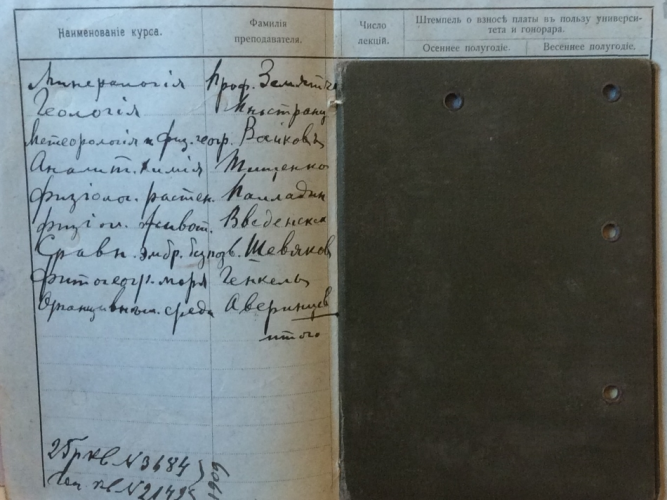 Наименованіе курса.
Фамилія преподавателя.
Число лекцій.
Штемпель о взносѣ платы въ пользу университета и гонорара.
Осеннее полугодіе.
Весеннее полугодіе.
Минералогія Проф. Земятче
Геологія Иностранц
Метеорологія и физ. геогр. Воейковъ
Аналит. химія Тищенко
Физіолог. растен. Палладин
Физіол. живот. Введенск
Сравн. эмбр. безпозв. Шевяков
Фитогеогр. моря Генкель
среда Аверинцев
итого
25 р кв N 3684
кв N 2142
1909